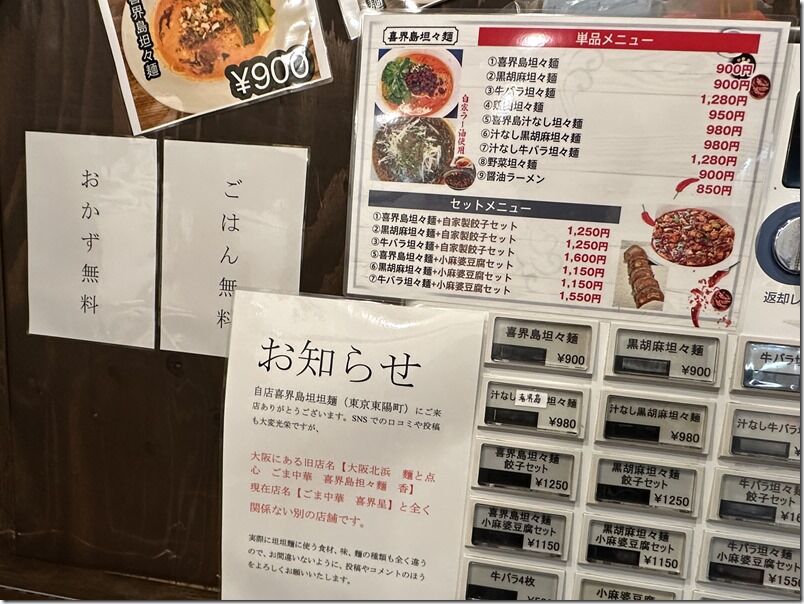 喜界島坦々麺
¥900
おかず無料
ごはん無料
喜界島坦々麺
自家ラー油使用
単品メニュー
①喜界島坦々麺 900円
②黒胡麻坦々麺 900円
③牛バラ坦々麺 1,280円
④ 坦々麺 950円
⑤喜界島汁なし坦々麺 980円
⑥汁なし黒胡麻坦々麺 980円
⑦汁なし牛バラ坦々麺 1,280円
⑧野菜坦々麺 900円
⑨醤油ラーメン 850円
セットメニュー
①喜界島坦々麺+自家製餃子セット 1,250円
②黒胡麻坦々麺+自家製餃子セット 1,250円
③牛バラ坦々麺+自家製餃子セット 1,600円
⑤喜界島坦々麺+小麻婆豆腐セット 1,150円
⑥黒胡麻坦々麺+小麻婆豆腐セット 1,150円
⑦牛バラ坦々麺+小麻婆豆腐セット 1,550円
返却レ
お知らせ
自店喜界島坦坦麺（東京東陽町）にご来
店ありがとうございます。SNSでの口コミや投稿
も大変光栄ですが、
大阪にある旧店名【大阪北浜 麺と点
心 ごま中華 喜界島坦々麺 香】
現在店名【ごま中華 喜界星】と全く
関係ない別の店舗です。
実際に坦坦麺に使う食材、味、麺の種類も全く違う
ので、お間違いないように、投稿やコメントのほう
をよろしくお願いいたします。
喜界島坦々麺
¥900
黒胡麻坦々麺
¥900
牛バラ坦
汁なし喜界島坦々麺
¥980
汁なし黒胡麻坦々麺
¥980
汁なし牛バラ
喜界島坦々麺
餃子セット
¥1250
黒胡麻坦々麺
餃子セット
¥1250
牛バラ坦々麺
餃子セット
喜界島坦々麺
小麻婆豆腐セット
¥1150
黒胡麻坦々麺
小麻婆豆腐セット
¥1150
牛バラ坦々麺
小麻婆豆腐セット
¥155
牛バラ4枚
小麻婆豆腐